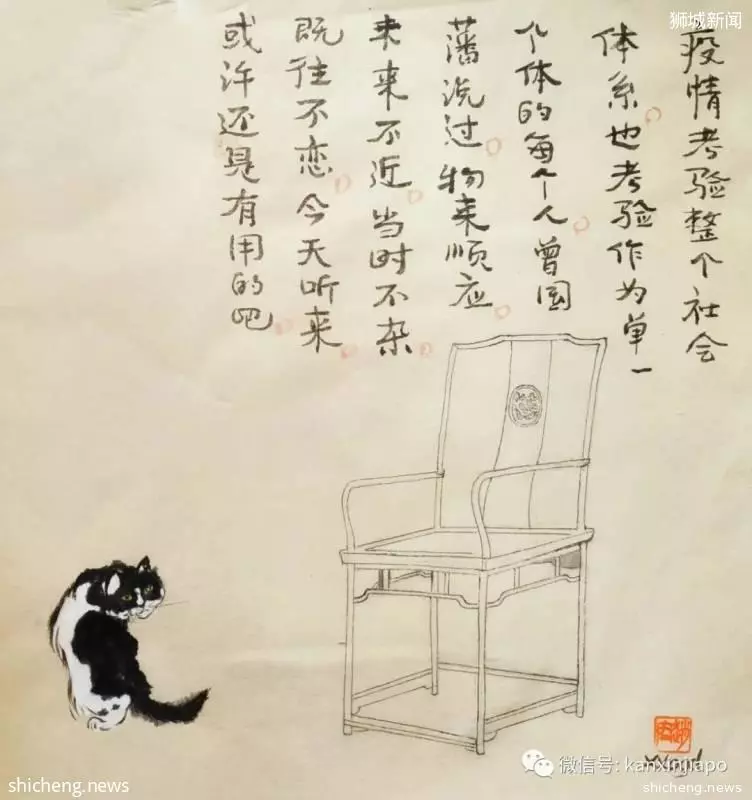 狮城新闻
疫情考验整个社会
体系也考验作为单一
个体的每个人曾国
藩说过物来顺应
未来不近当时不杂
既往不恋今天听来
或许还是有用的吧
微信号: kanxinjiapo
shicheng.news
shicheng.news